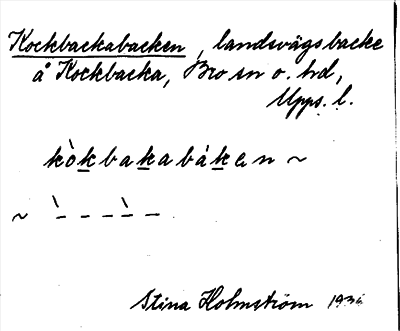 Kockbackabacken, landsvägsbacke
å Kockbacka, Bro sn o. hd,
Upps. l.
kòkbakabákan ~
~ – – – – –
Stina Holmström